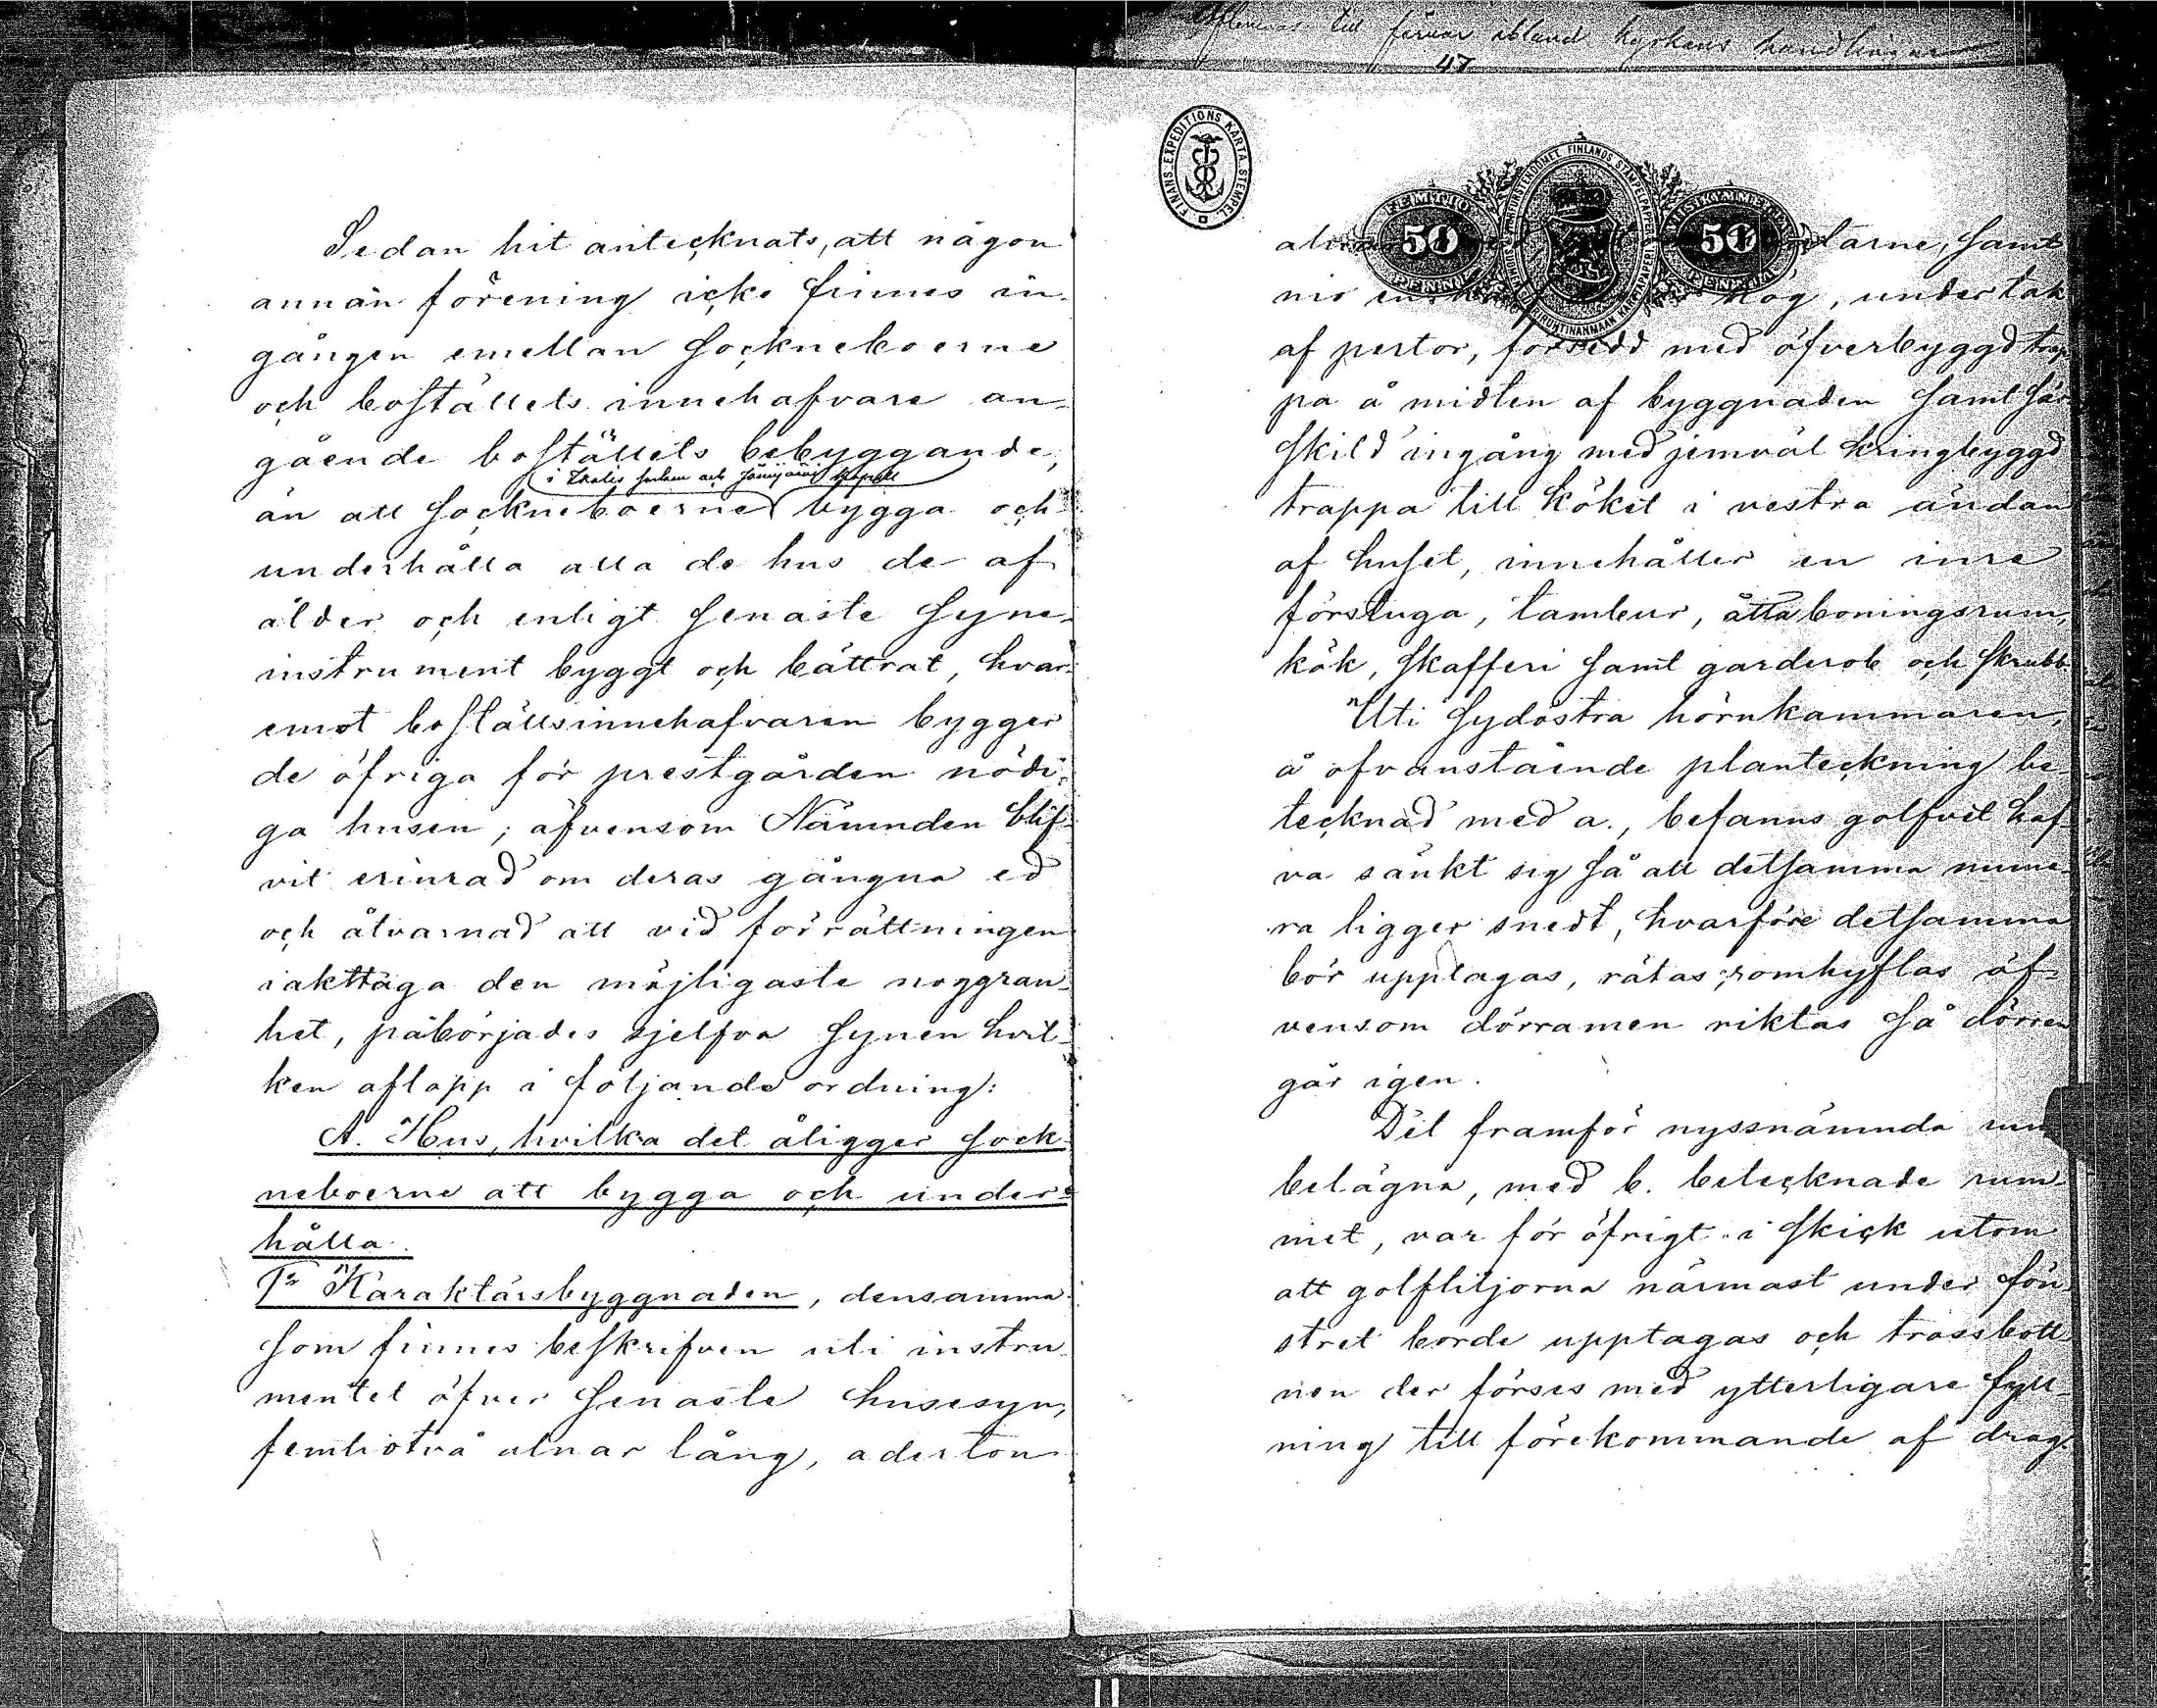 Sedan hit antecknats, att någon
annan förening icke finnes in-
gången emellan sockneboerne
och boställets innehafvare an-
gående boställets bebyggande,
i Ikalis socken och Jämijärvi kapell
än att sockneboerne bygga och
underhålla alla de hus de af
ålder och enligt senaste syne-
instrument byggt och bättrat, hvar-
emot boställsinnehafvaren bygger
de öfriga för prestgården nödi-
ga husen; äfvensom Nämnden blif-
vit erinrad om deras gångna ed
och åtvarnad att vid förrättningen
iakttaga den möjligaste noggran-
het, påbörjades sjelfva synen hvil-
ken aflopp i följande ordning:
A. Hus, hvilka det åligger sock-
neboerne att bygga och under-
hålla.
1o Karaktärsbyggnaden, densamma
som finnes beskrifven uti instru-
mentet öfver senaste husesyn,
femtiotvå alnar lång, aderton
Aflemnas till förvar ibland kyrkans handlingar
47
FINANS-EXPEDITIONS KARTA STEMPEL
FEMTIO 50 PENNI
50 PENNIÄ
samt
hög, undertak
af pertor, försedd med öfverbyggd trap-
pa å midten af byggnaden samt sär-
skild ingång med jemväl kringbyggd
trappa till köket i vestra ändan
af huset, innehåller en inre
förstuga, tambur, åtta boningsrum,
kök, skafferi samt garderob och skrubb.
Uti sydöstra hörnkammaren,
å ofvanstående planteckning be-
tecknad med a., befanns golfvet haf-
va sänkt sig så att detsamma nume-
ra ligger snedt, hvarföre detsamma
bör upptagas, rätas, omhyflas äf-
vensom dörramen riktas så dörren
går igen.
Det framför nyssnämnda rum
belägna, med b. betecknade rum-
met, var för öfrigt i skick utom
att golftiljorna närmast under fön-
stret borde upptagas och trossbott-
nen der förses med ytterligare fyll-
ning till förekommande af drag.